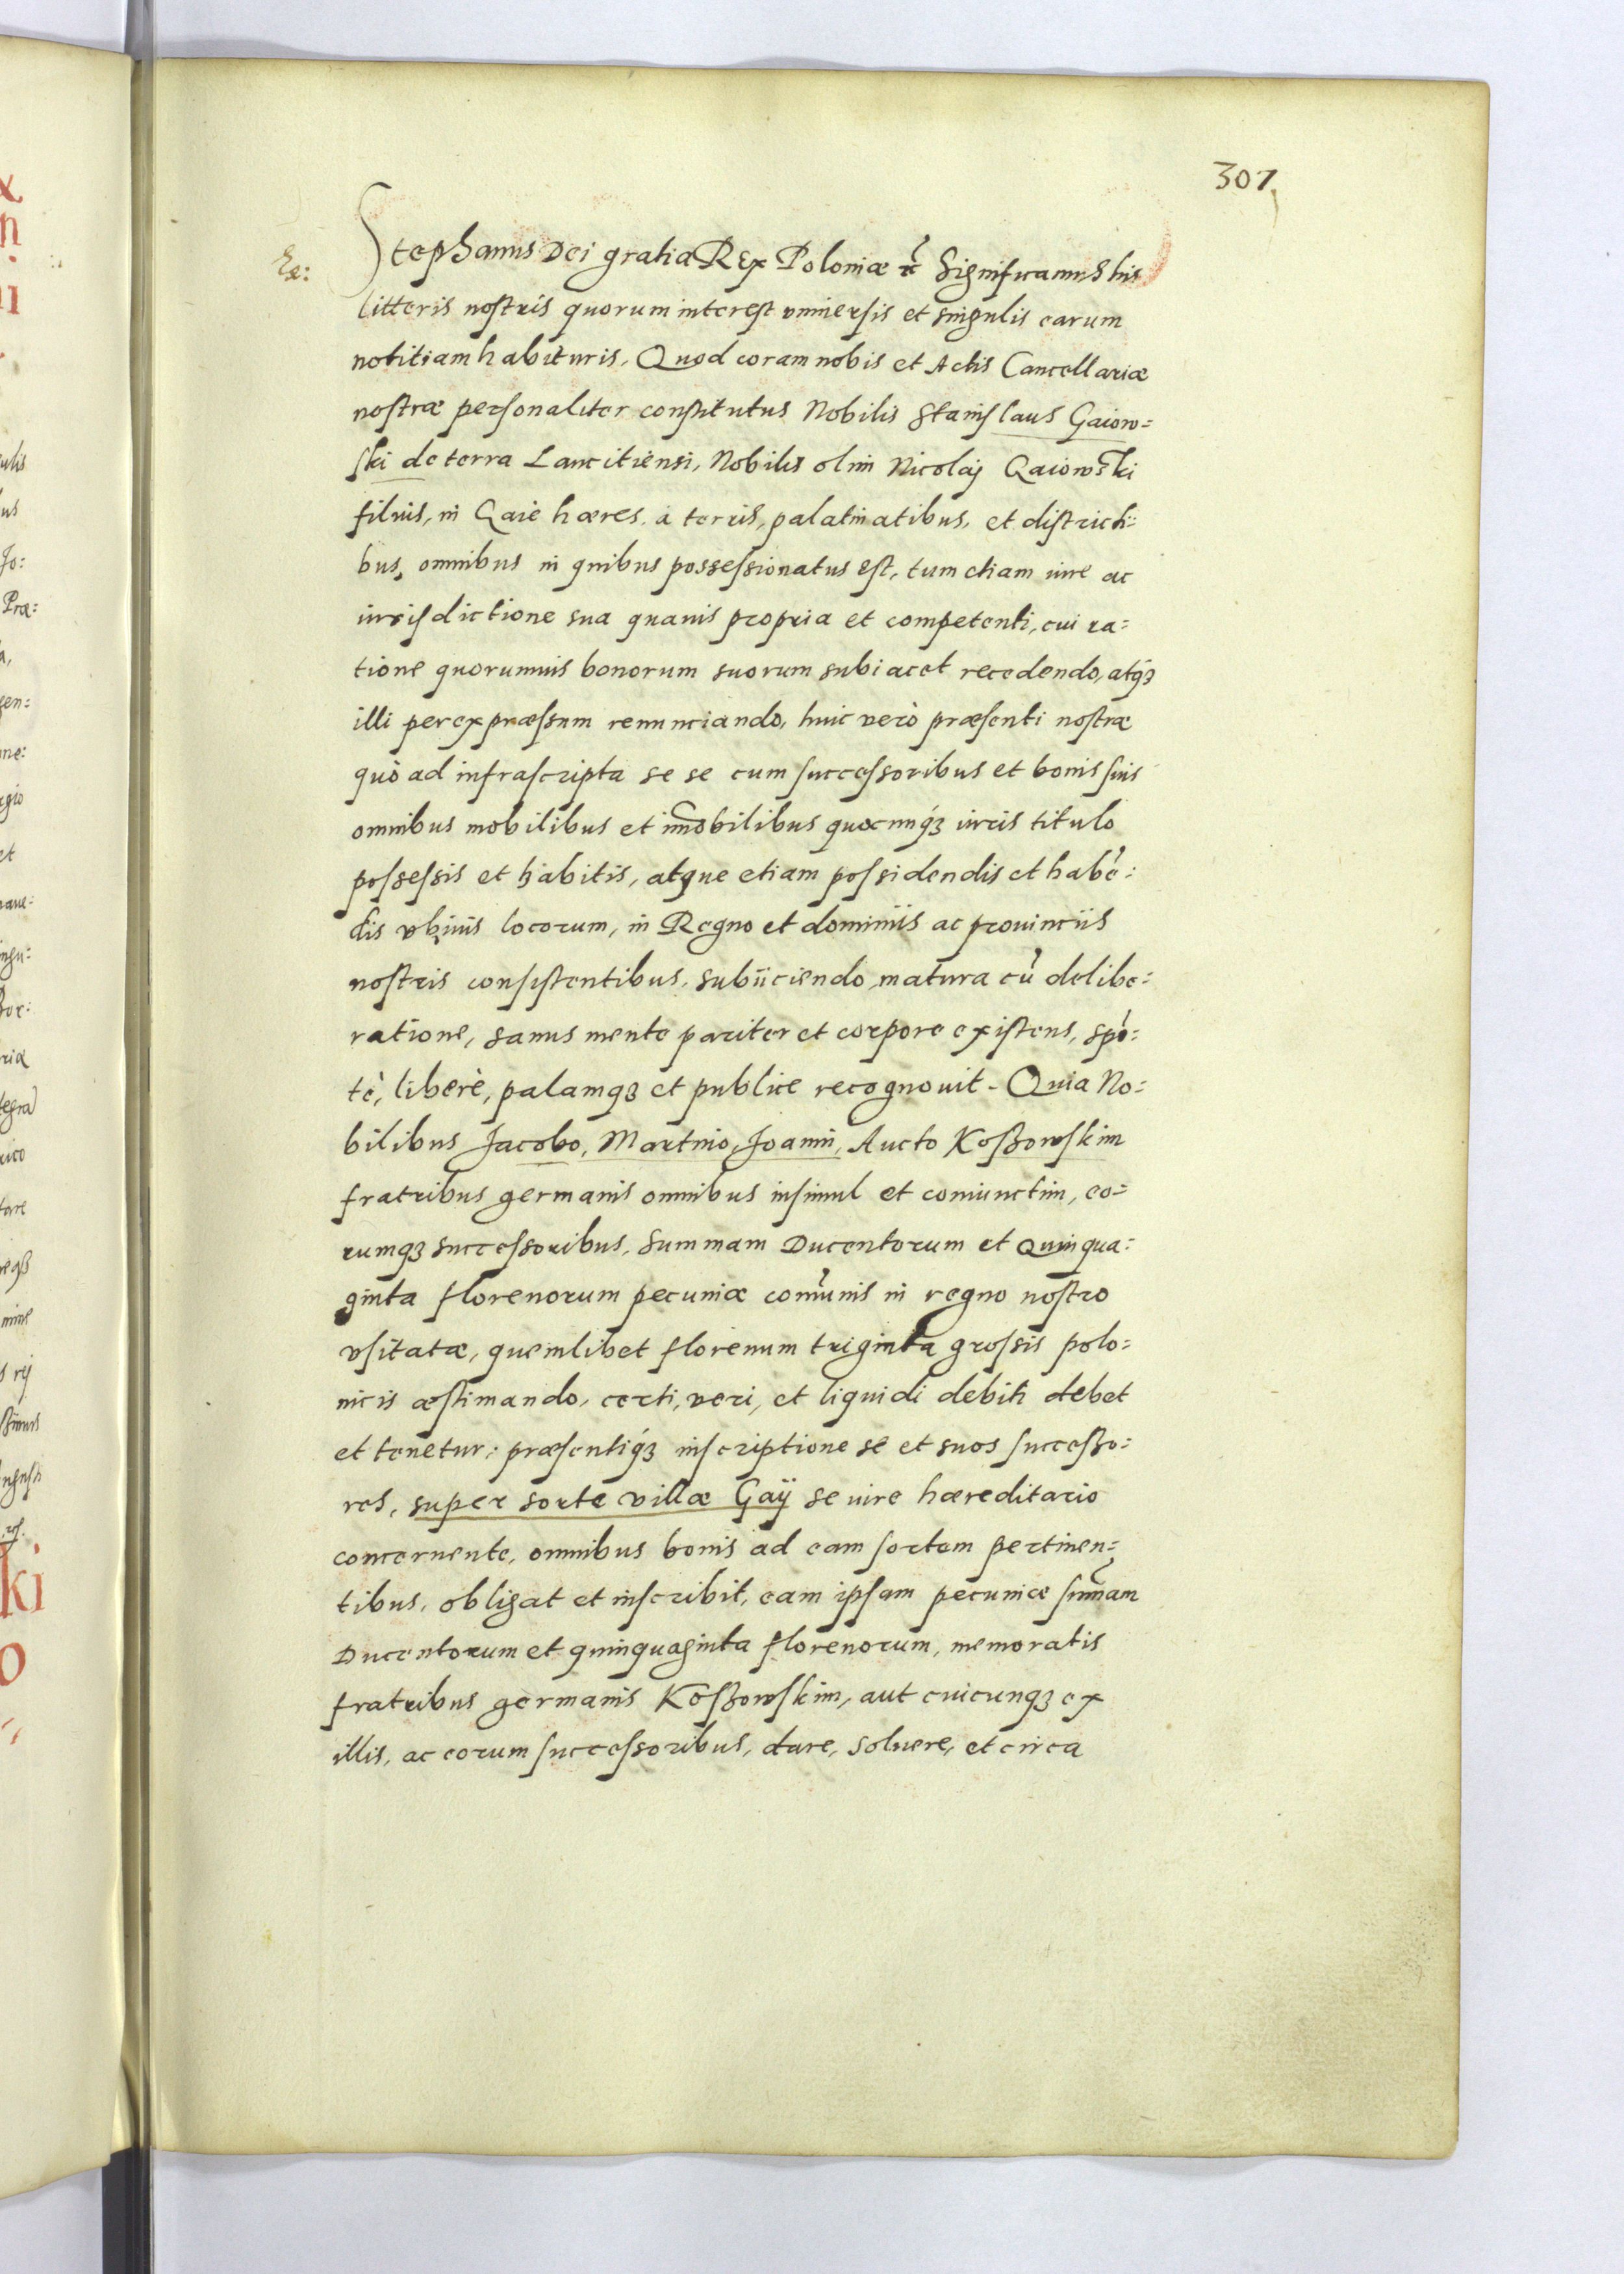 307
Stephanus Dei gratia Rex Poloniæ Significamus his
litteris nostris quorum interest vniuersis et singulis earum
notitiam habituris, Quod coram nobis et Actis Cancellariæ
nostræ personaliter constitutus Nobilis Stanislaus Gaiow=
ski de terra Lancitiensi, Nobilis olim Nicolaj Gaiowski
filius, in Gaie hæres, à terris, palatinatibus, et districti=
bus, omnibus in quibus possessionatus est, tum etiam iure ac
iurisdictione sua quauis propria et competenti, cui ra=
tione quorumuis bonorum suorum subiacet recedendo, atq₃
illi per expræssum renunciando, huic verò præsenti nostræ
quò ad infrascripta se se cum successoribus et bonis suis
omnibus mobilibus et im̄obilibus quocunq₃ iuris titulo
possessis et habitis, atque etiam possidendis et habē=
dis vbiuis locorum, in Regno et dominiis ac prouinciis
nostris consistentibus, subiiciendo, matura cū delibe=
ratione, sanus mente pariter et corpore existens, spō=
tè, liberè, palamq₃ et publice recognouit - Quia No=
bilibus Jacobo, Martino, Joanni, Aucto Koßowskim
fratribus germanis omnibus insimul et coniunctim, eo=
rumq₃ successoribus, Summam Ducentorum et Quinqua=
ginta florenorum pecuniæ com̄unis in regno nostro
vsitatæ, quemlibet florenum triginta grossis polo=
nicis æstimando, certi, veri, et liquidi debiti debet
et tenetur: præsentiq₃ inscriptione se et suos successo=
res, super sorte villæ Gaÿ se iure hæreditario
concernente, omnibus bonis ad eam sortem pertinen=
tibus, obligat et inscribit, eam ipsam pecuniæ sum̄am
Ducentorum et quinquaginta florenorum, memoratis
fratribus germanis Koßowskim, aut cuicunq₃ ex
illis, ac eorum successoribus, dare, soluere, et circa